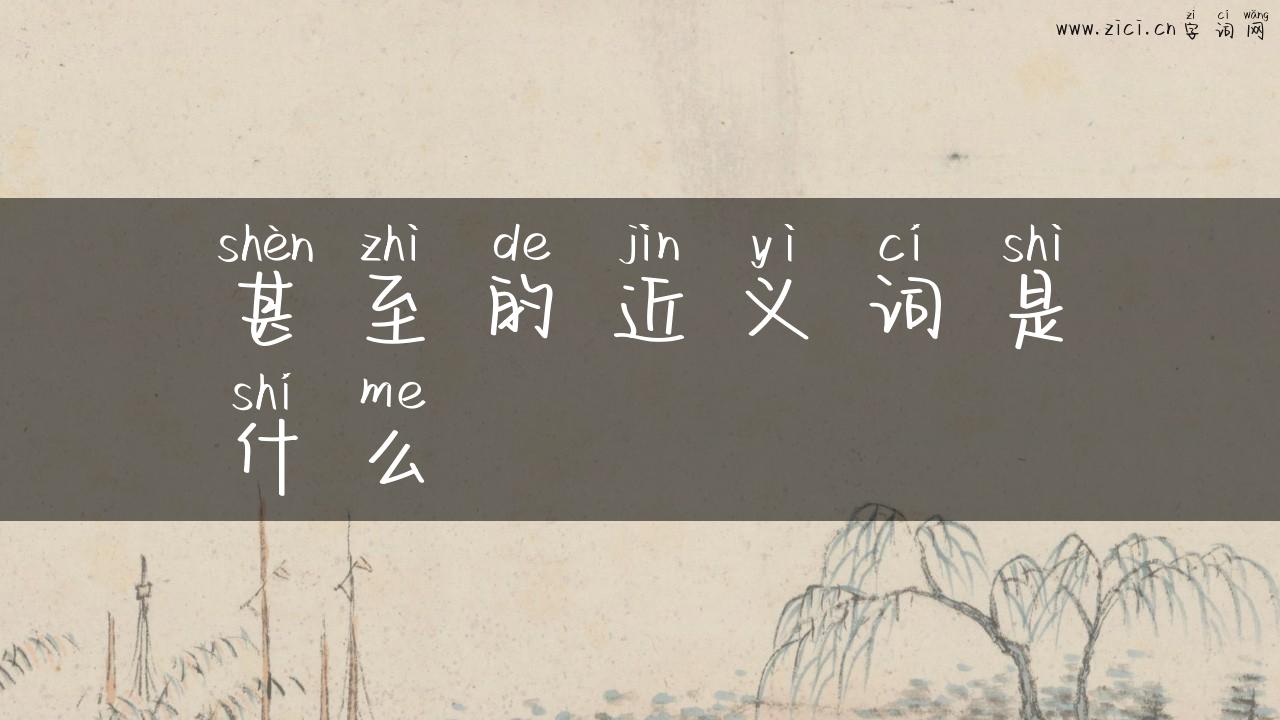 zì cí wǎng
www.zici.cn 字词网
shèn zhì de jìn yì cí shì
甚至的近义词是
shí me
什么